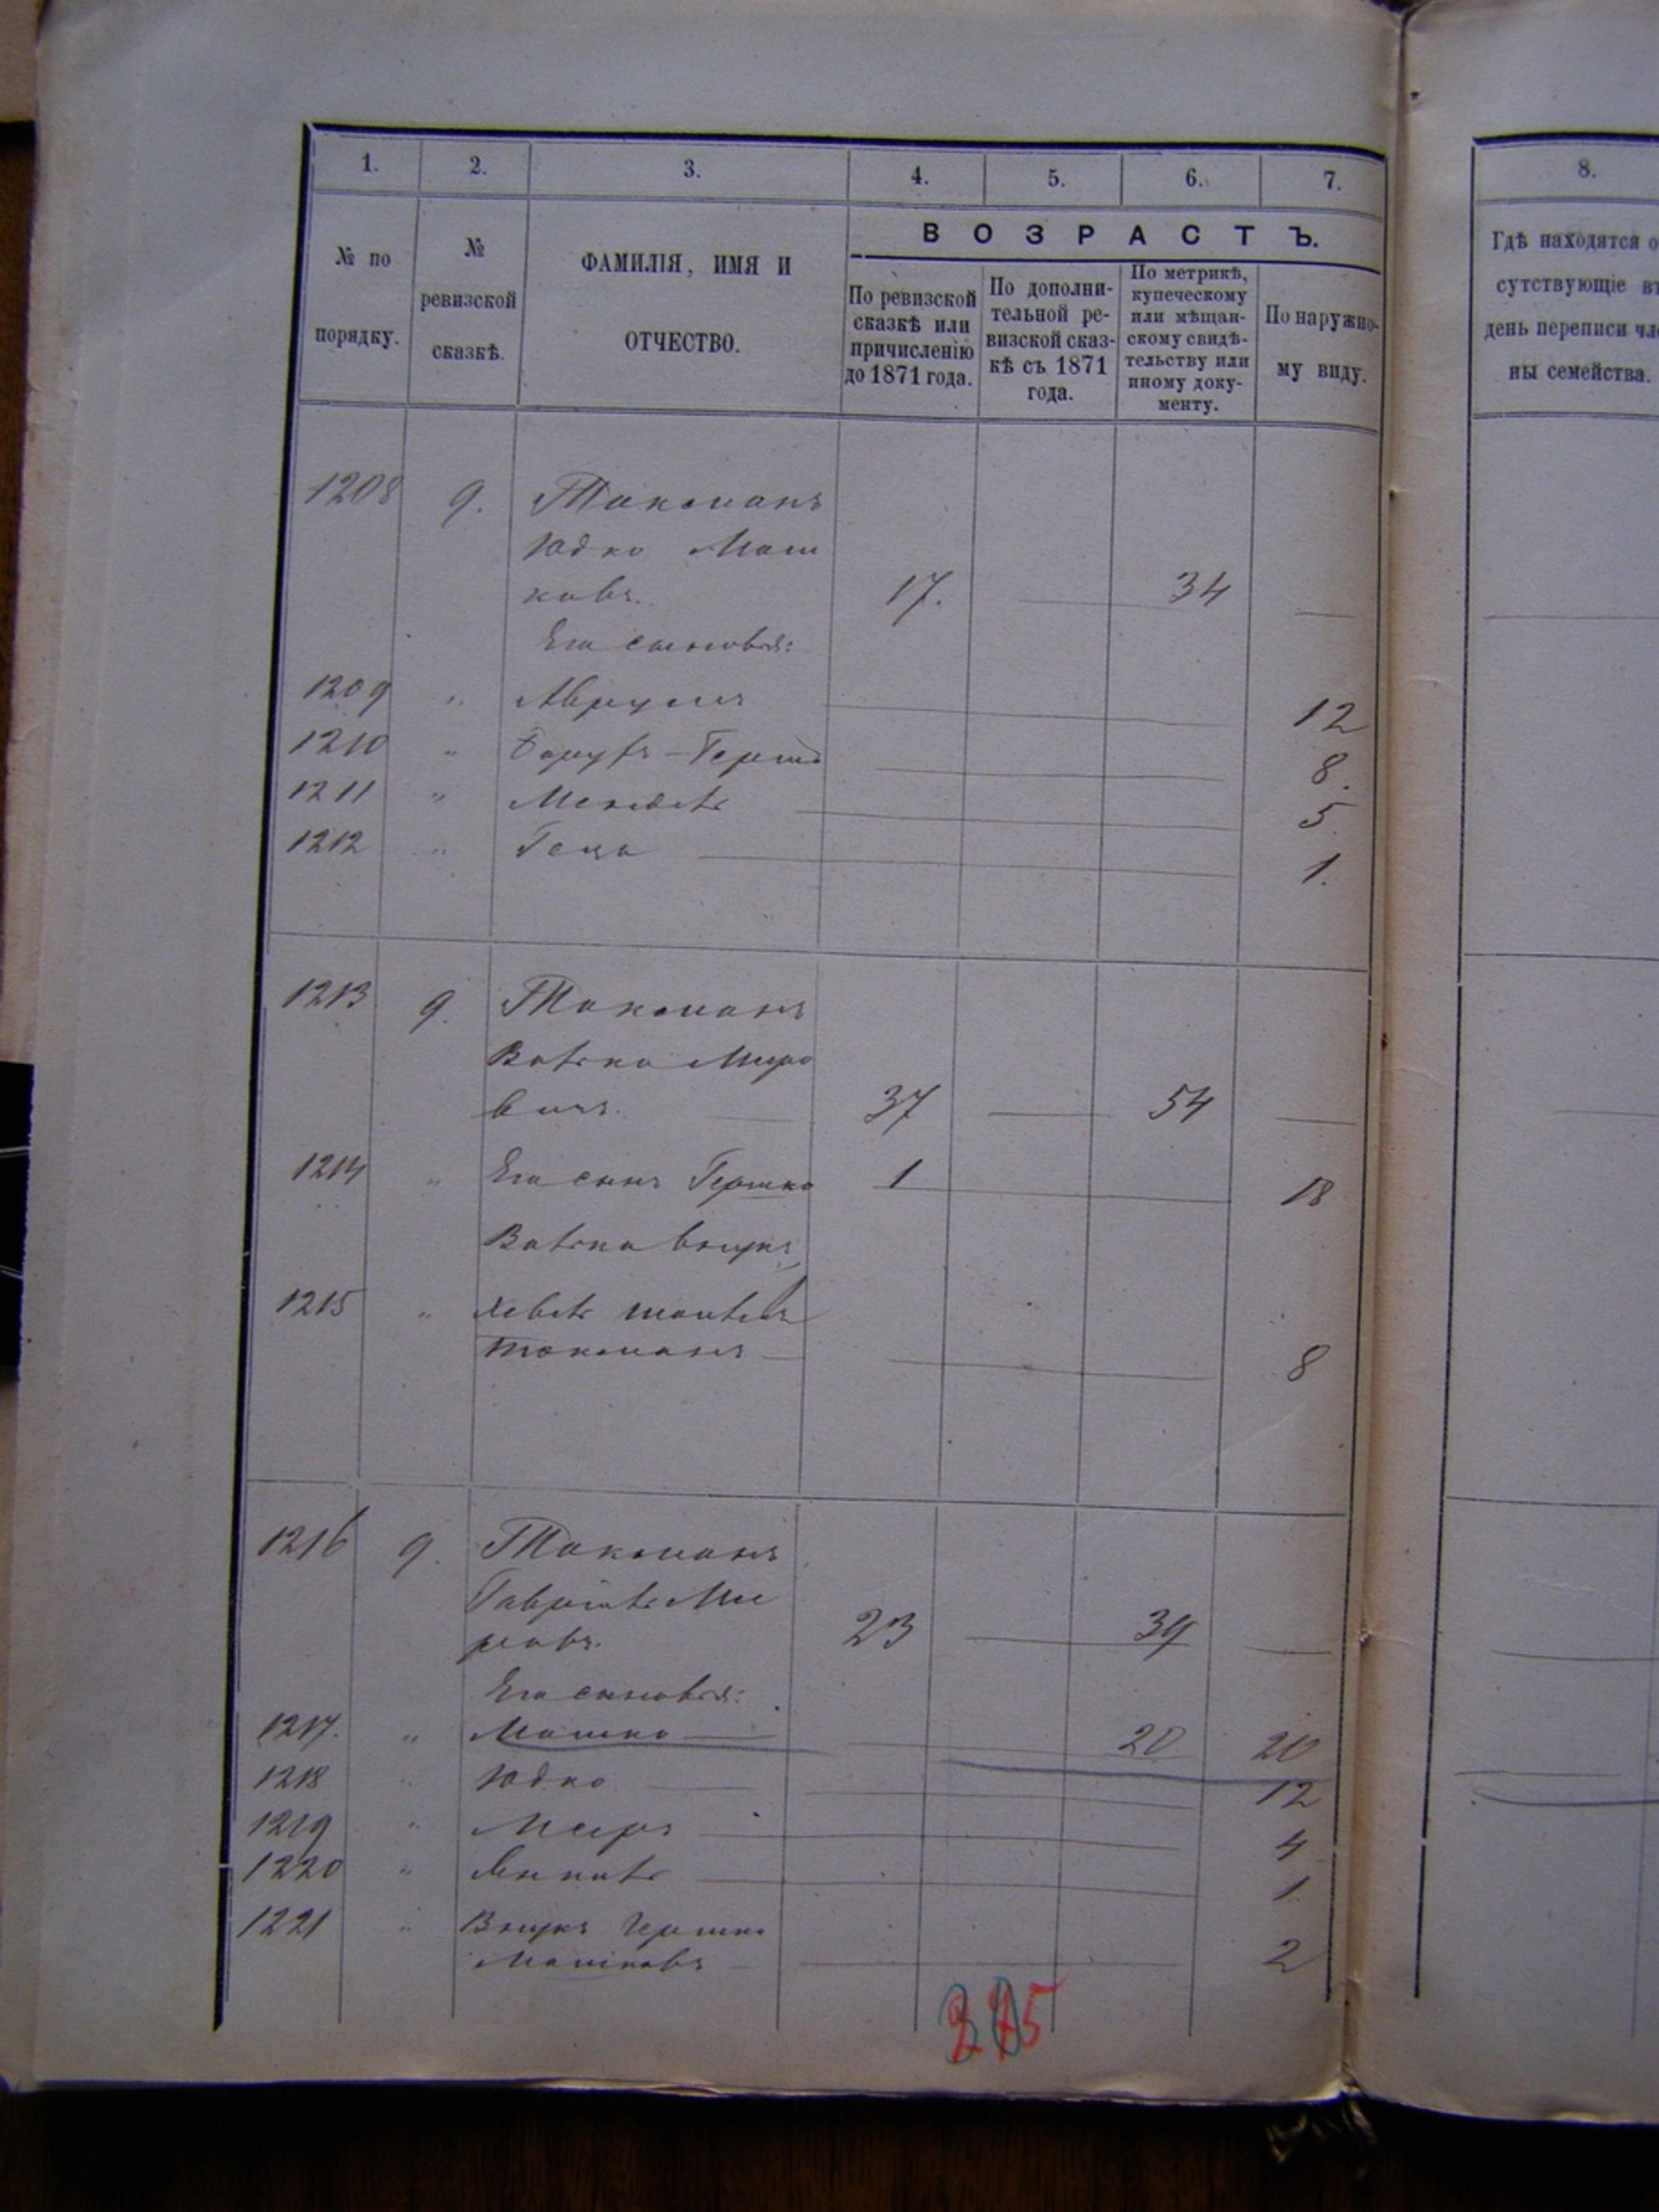 1. 2. 3. 4. 5. 6. 7. 8.
№ по порядку.
№ ревизской сказкѣ.
ФАМИЛІЯ, ИМЯ И ОТЧЕСТВО.
ВОЗРАСТЪ.
По ревизской сказкѣ или причисленію до 1871 года.
По дополнительной ревизской сказкѣ съ 1871 года.
По метрикѣ, купеческому или мѣщанскому свидѣтельству или иному документу.
По наружному виду.
Гдѣ находятся о
сутствующіе въ
день переписи чле
ны семейства.
1208 9. Токманъ
Юдко Мош
ковъ. 17. — 34 —
Его сыновья:
1209 " Аврумъ 12
1210 " Борухъ-Гершъ 8.
1211 " Мендель 5.
1212 " 1.
1213 9. Токманъ
Волько Меро
вичъ. 37 — 54 —
1214 " Его сынъ Гершко 1 18
Волька внукъ
1215 "
Токманъ — 8
1216 9. Токманъ
Гавріилъ Ме
ровъ. 23 — 39 —
Его сыновья:
1217. " Мошко — 20 20
1218 " Юдко — 12
1219 " Меръ — 4
1220 " 1
1221 " Внукъ Гершко
Мошковъ — 2